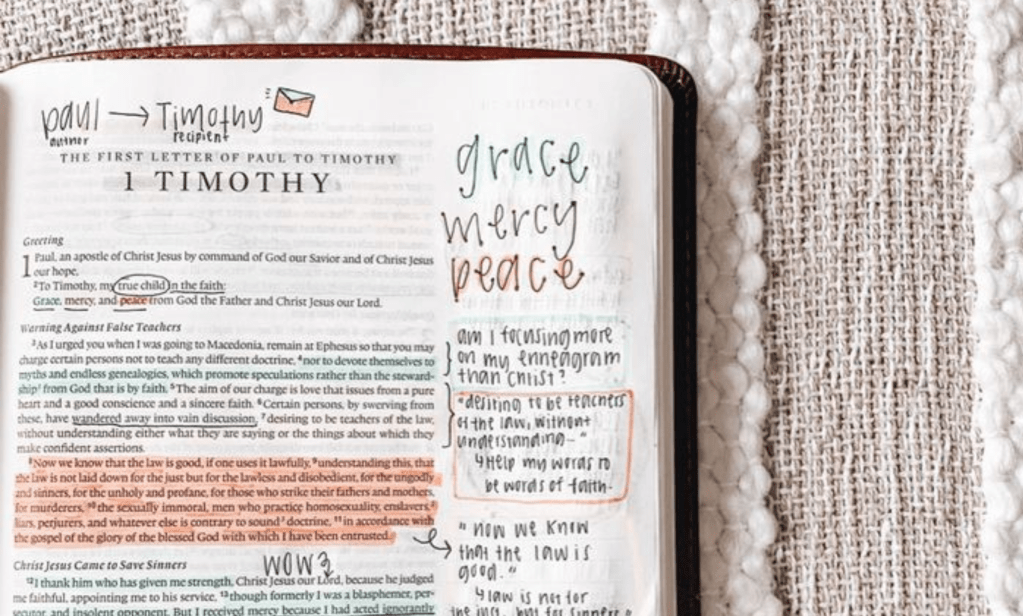 paul → Timothy
author recipient
THE FIRST LETTER OF PAUL TO TIMOTHY
1 TIMOTHY
Greeting
1 Paul, an apostle of Christ Jesus by command of God our Savior and of Christ Jesus
our hope,
2 To Timothy, my true child in the faith:
Grace, mercy, and peace from God the Father and Christ Jesus our Lord.
Warning Against False Teachers
3 As I urged you when I was going to Macedonia, remain at Ephesus so that you may
charge certain persons not to teach any different doctrine, 4 nor to devote themselves to
myths and endless genealogies, which promote speculations rather than the steward-
ship1 from God that is by faith. 5 The aim of our charge is love that issues from a pure
heart and a good conscience and a sincere faith. 6 Certain persons, by swerving from
these, have wandered away into vain discussion, 7 desiring to be teachers of the law,
without understanding either what they are saying or the things about which they
make confident assertions.
8 Now we know that the law is good, if one uses it lawfully, 9 understanding this, that
the law is not laid down for the just but for the lawless and disobedient, for the ungodly
and sinners, for the unholy and profane, for those who strike their fathers and mothers,
for murderers, 10 the sexually immoral, men who practice homosexuality, enslavers,2
liars, perjurers, and whatever else is contrary to sound3 doctrine, 11 in accordance with
the gospel of the glory of the blessed God with which I have been entrusted.
Christ Jesus Came to Save Sinners
WOW
12 I thank him who has given me strength, Christ Jesus our Lord, because he judged
me faithful, appointing me to his service, 13 though formerly I was a blasphemer, per-
secutor, and insolent opponent. But I received mercy because I had acted ignorantly
grace
mercy
peace
am I focusing more
on my enneagram
than Christ?
"desiring to be teachers
of the law, without
understanding..."
↳ Help my words to
be words of faith.
"now we know
that the law is
good."
↳ law is not for
the just, but for sinners